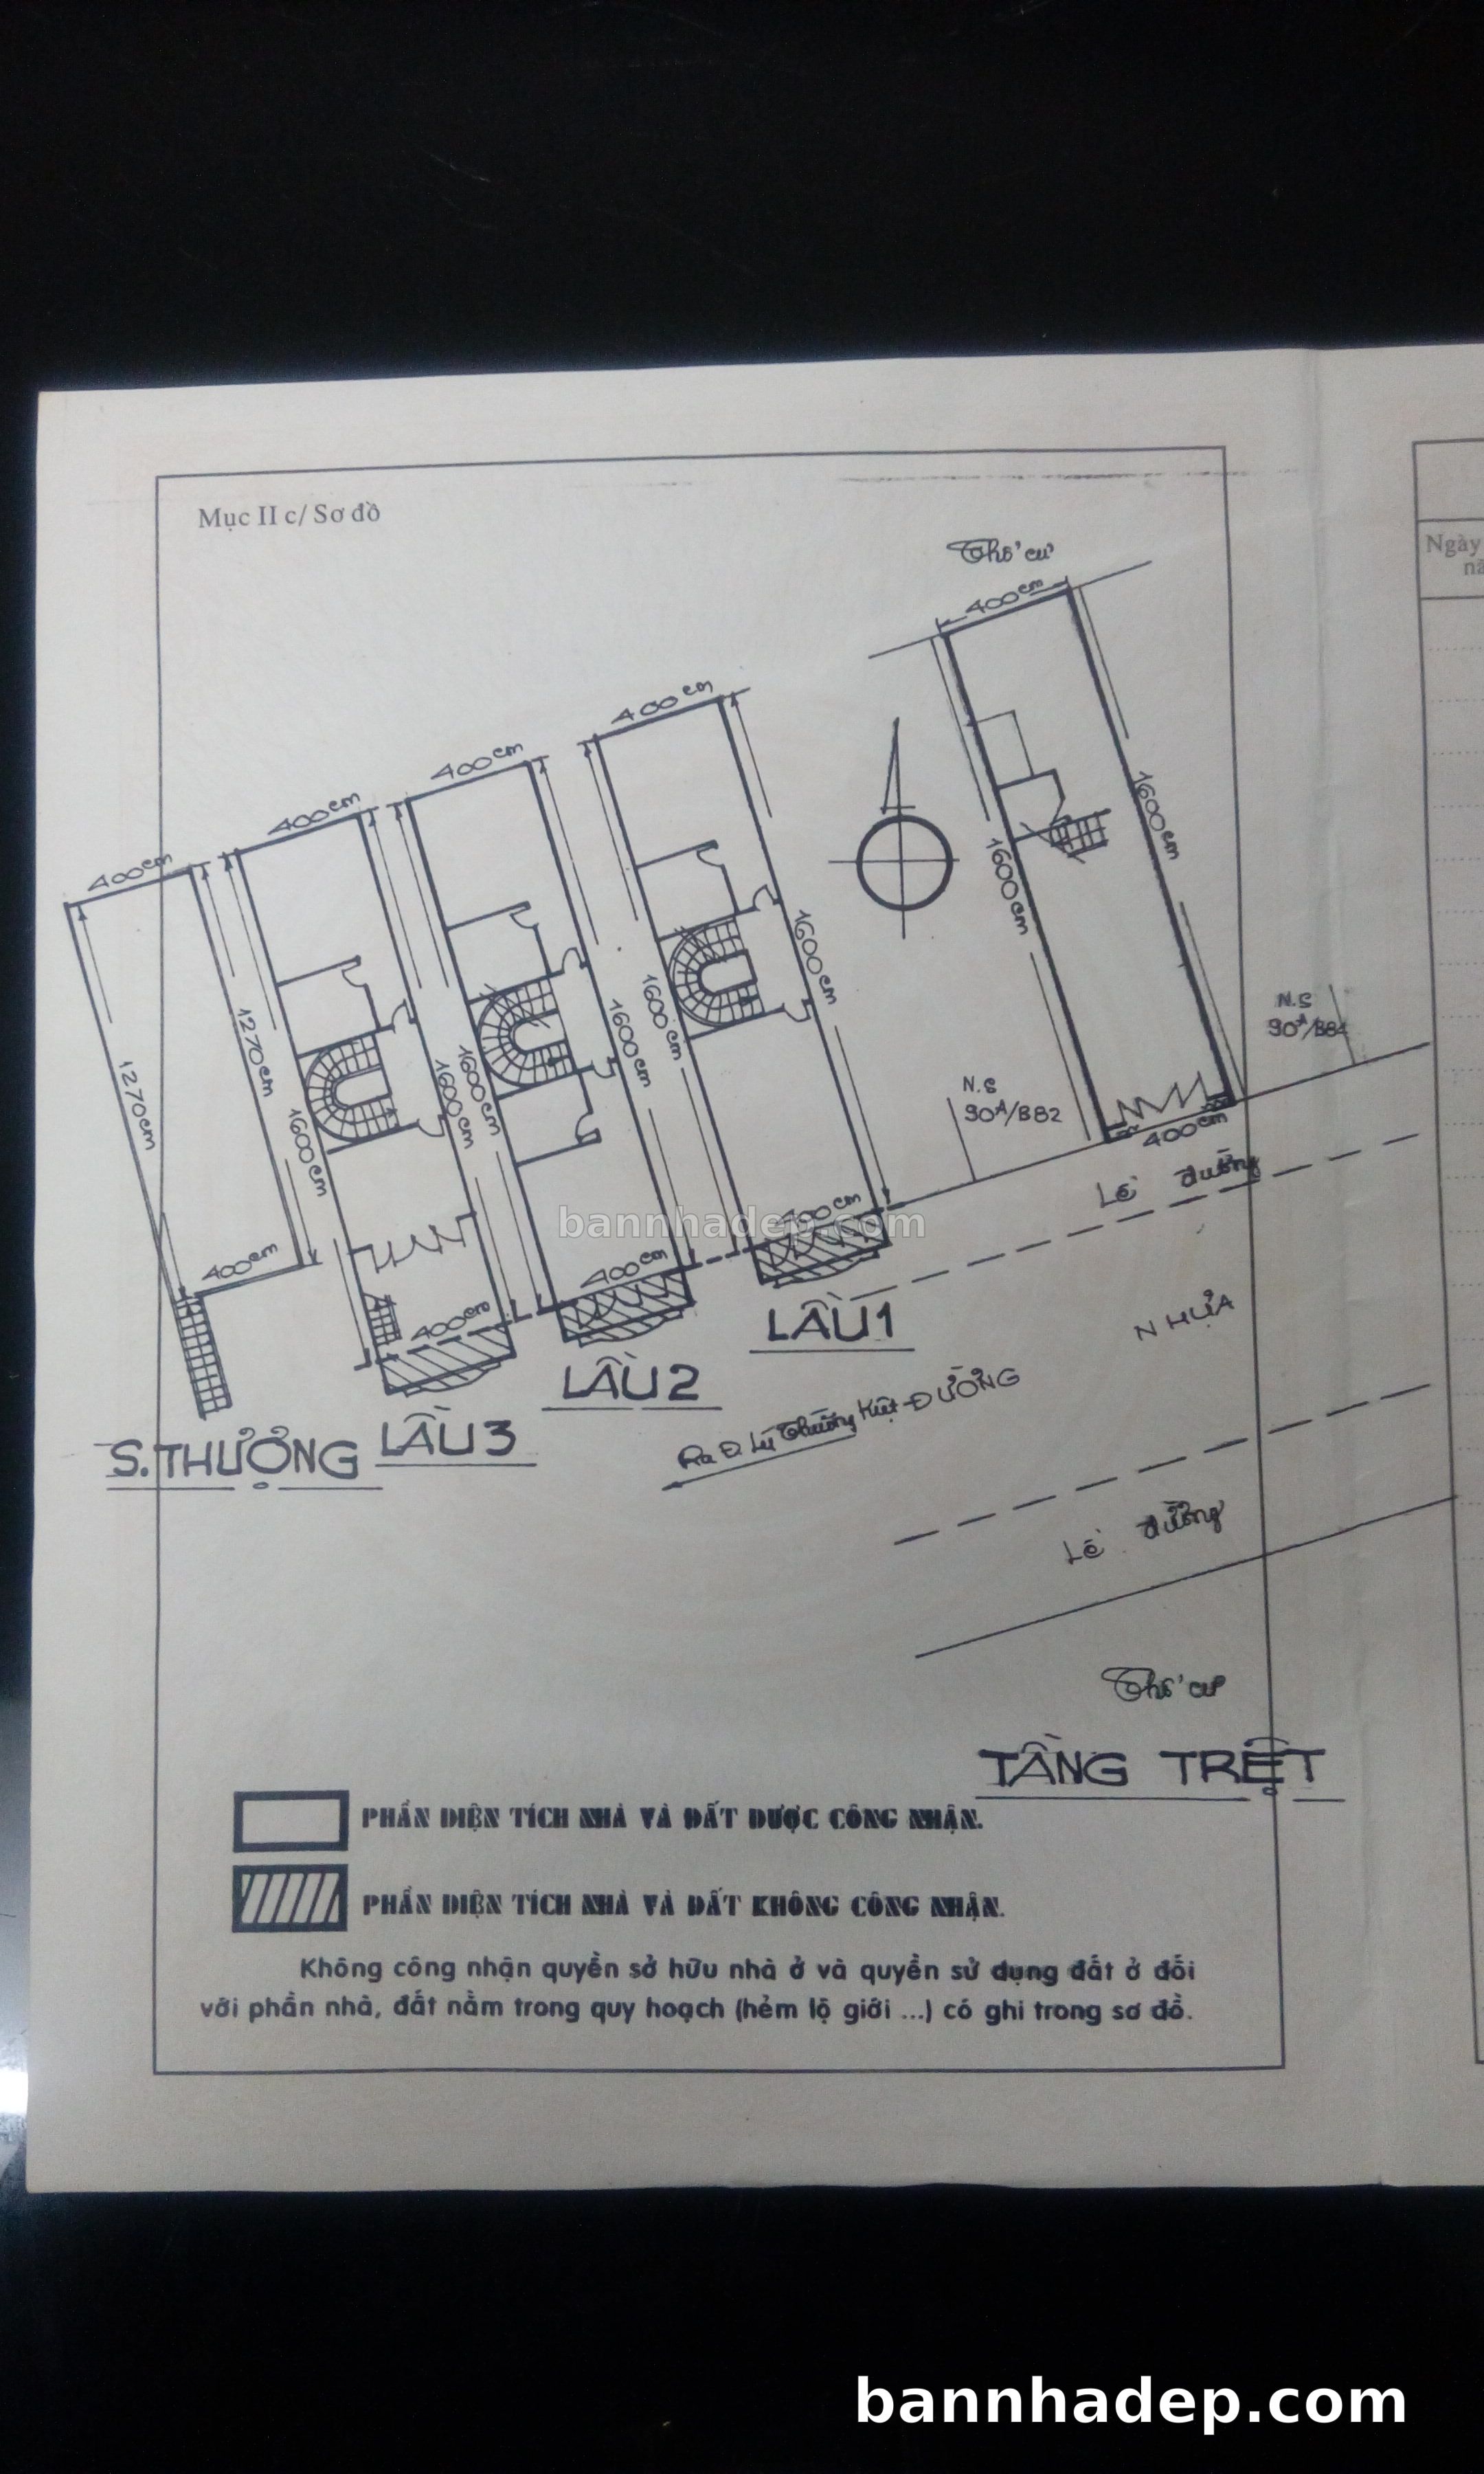 Mục II c/ Sơ đồ
Ngày
nă
Thổ cư
400cm
1600cm
1600cm
400cm
N.S
90A/B84
N.S
90A/B82
Lề đường
NHỰA
ĐƯỜNG
Ra Đ. Lý Thường Kiệt
Lề đường
Thổ cư
TẦNG TRỆT
400cm
1600cm
1600cm
400cm
LẦU 1
400cm
1600cm
1600cm
400cm
LẦU 2
400cm
1600cm
1600cm
400cm
LẦU 3
400cm
1270cm
1270cm
400cm
S.THƯỢNG
bannhadep.com
PHẦN DIỆN TÍCH NHÀ VÀ ĐẤT ĐƯỢC CÔNG NHẬN.
PHẦN DIỆN TÍCH NHÀ VÀ ĐẤT KHÔNG CÔNG NHẬN.
Không công nhận quyền sở hữu nhà ở và quyền sử dụng đất ở đối
với phần nhà, đất nằm trong quy hoạch (hẻm lộ giới ...) có ghi trong sơ đồ.
bannhadep.com